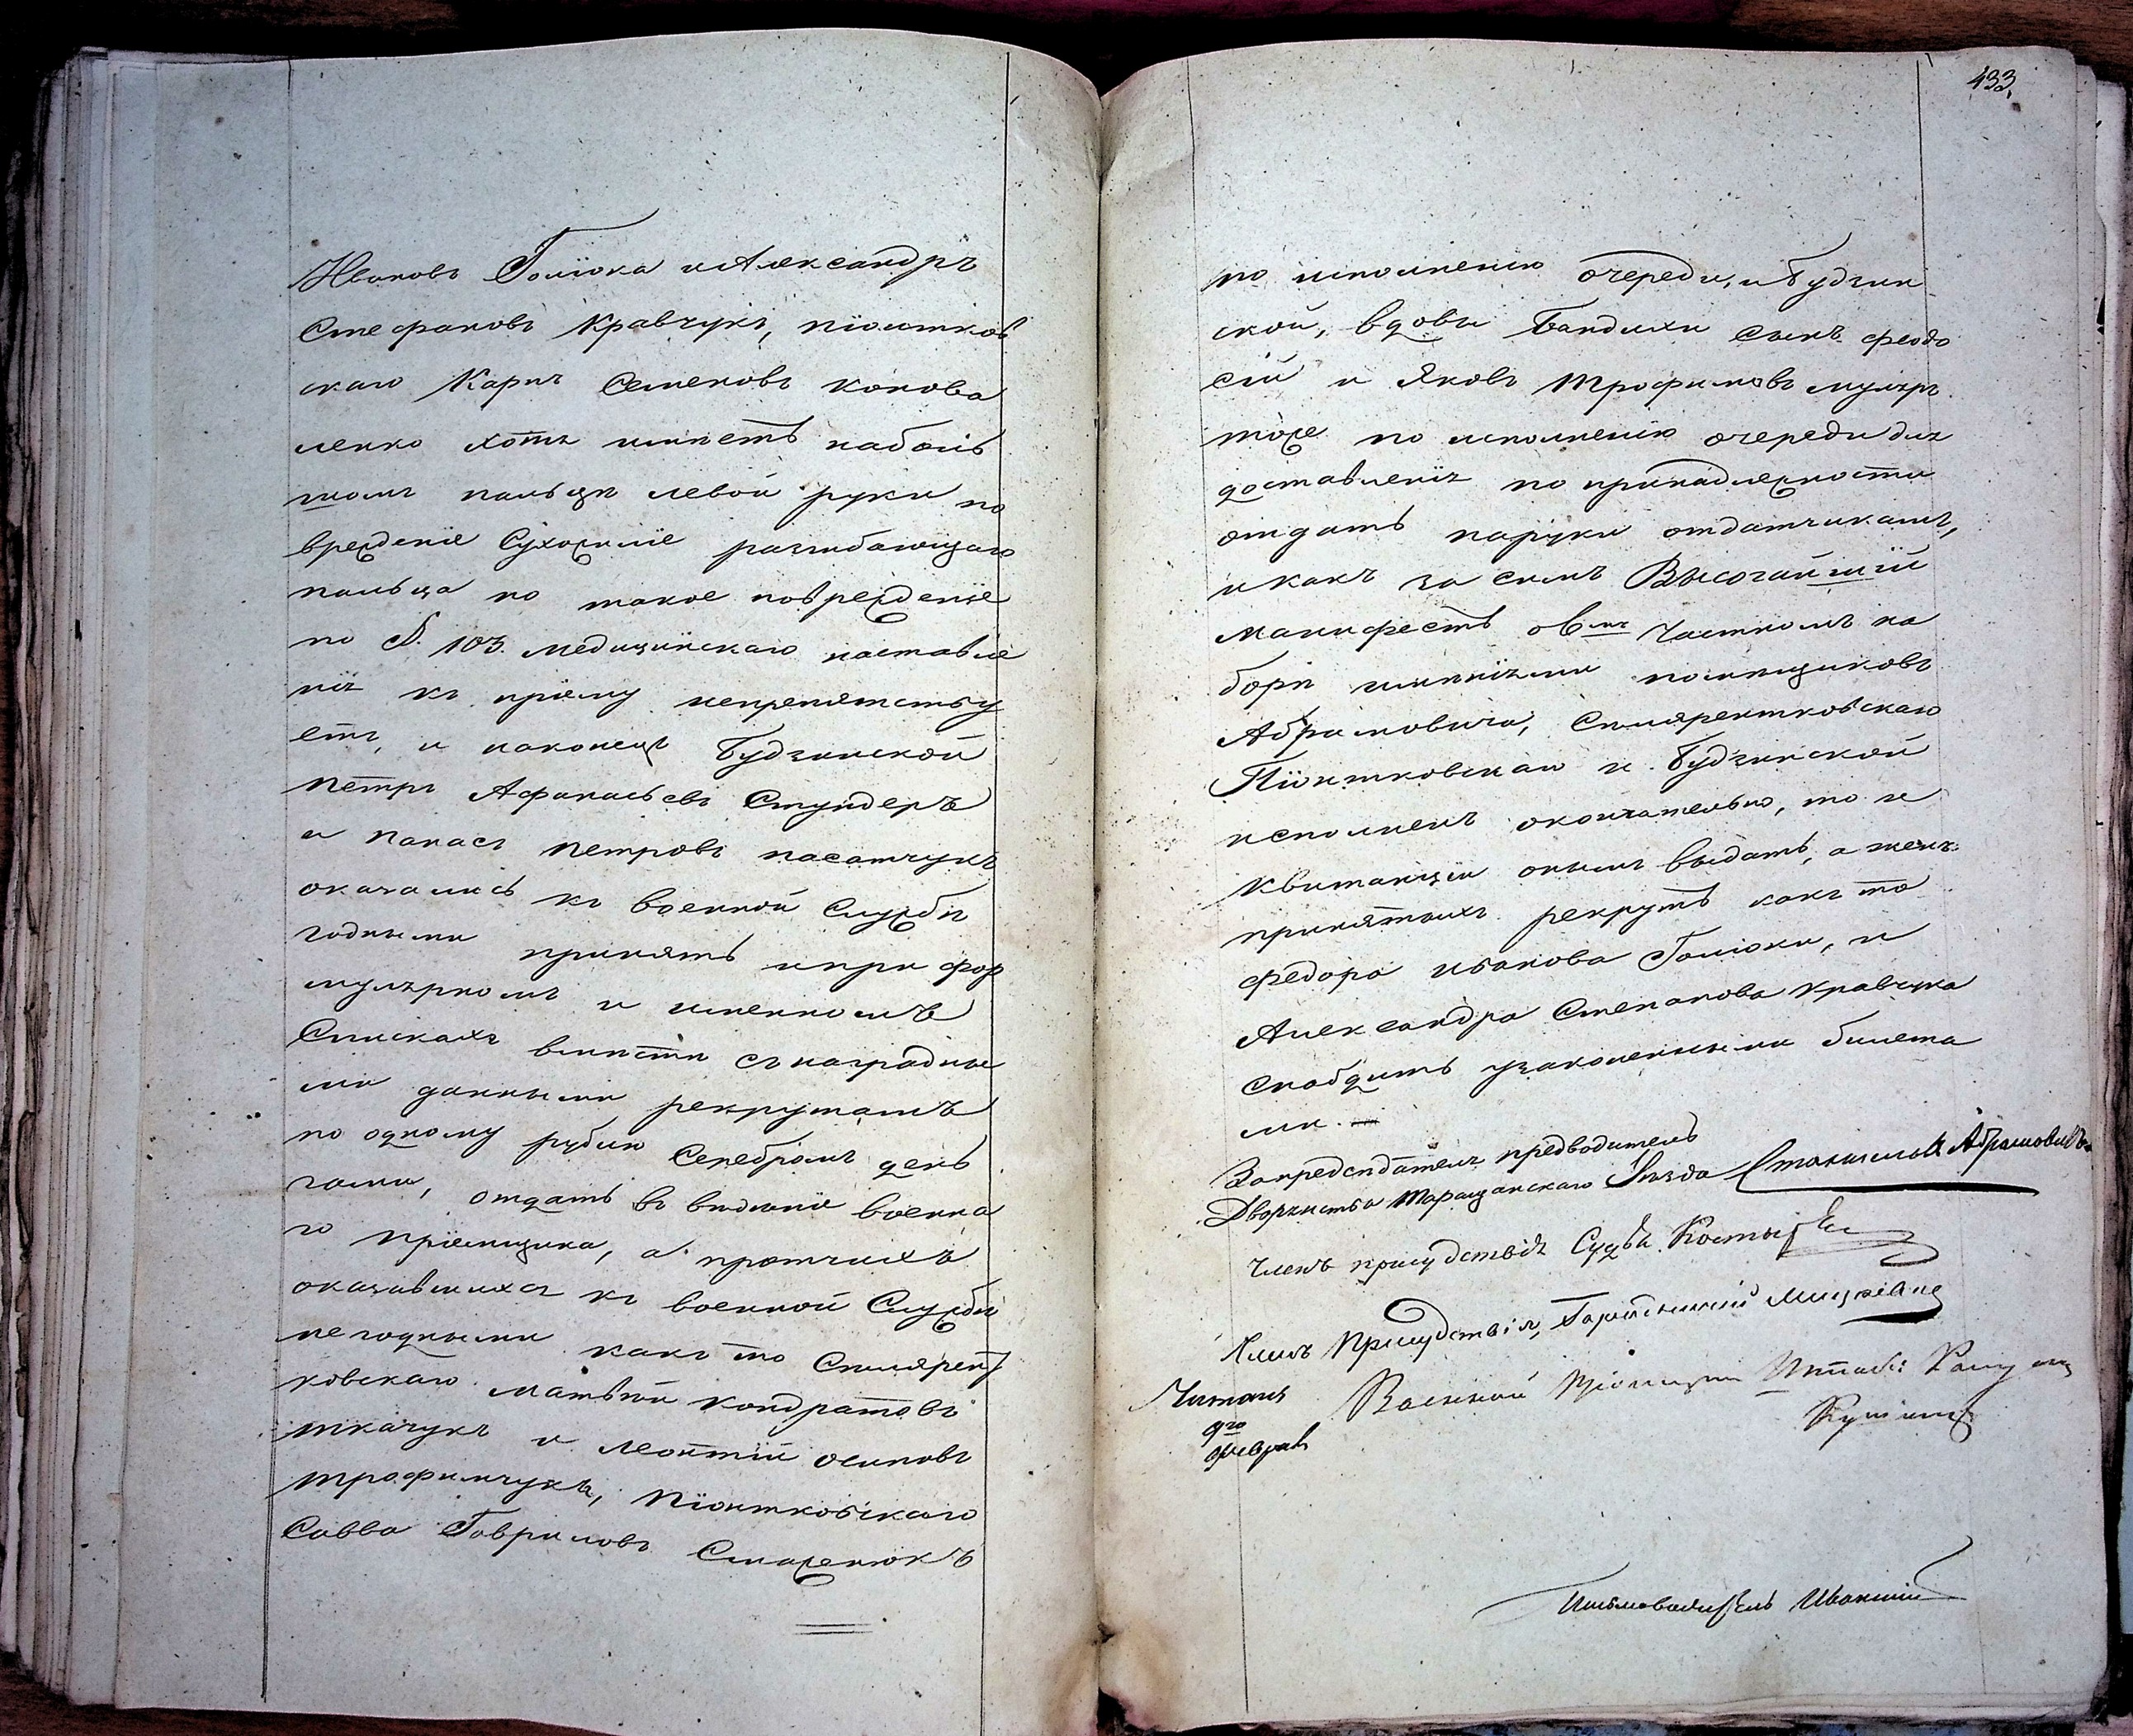 Ивановъ Голюка и Александръ
Стефановъ Кравчукъ, Піонтков
скаго Карпъ Семеновъ Конова
ленко хотя имѣетъ наболь
шомъ пальцѣ левой руки по
врежденіе Сухожиліе разгибающаго
пальца но такое поврежденіе
по §. 103. медицинскаго наставле
нія къ пріему непрепятству
етъ, и наконецъ Будзинской
Петръ Афанасьевъ Стундеръ
и Панасъ Петровъ Пасатчукъ
оказались къ военной Службѣ
годными принять и при фор
мулярномъ и именномъ
Спискахъ вмѣстѣ съ наградны
ми данными рекрутамъ
по одному рублю Серебромъ день
гами, отдать въ виденіе военна
го пріемщика, а протчихъ
оказавшихся къ военной Службѣ
негодными какъ то Спмярент
ковскаго Матвѣй Кондратовъ
Ткачукъ и Леонтій Осиповъ
Трофимчукъ, Піонтковскаго
Савва Гавриловъ Смаженюкъ
433.
по исполненію очереди, и Будзин
ской, вдовы Бандихи сынъ Феодо
сій и Яковъ Трофимовъ Муляръ
тоже по исполненію очереди для
доставленія по принадлежности
отдать на руки отдатчикамъ,
и какъ за симъ Высочайшій
Манифестъ о 6мъ Частномъ на
борѣ имѣніями помѣщиковъ
Абрамовича,
Піонтковскаго и Будзинской
исполненъ окончательно, то и
квитанціи онымъ выдать, а женъ
принятыхъ рекрутъ какъ то
Федора Иванова Голюки, и
Александра Степанова Кравчука
снабдить узаконенными билета
ми.
За предсѣдателя предводитель
Дворянства Таращанскаго Уѣзда Станиславъ Абрамовичъ
Членъ присудствія Судья
Членъ Присудствія, Городничій
Читалъ Военный Пріемщикъ Штабсъ
9го
Феврал
Письмоводитель